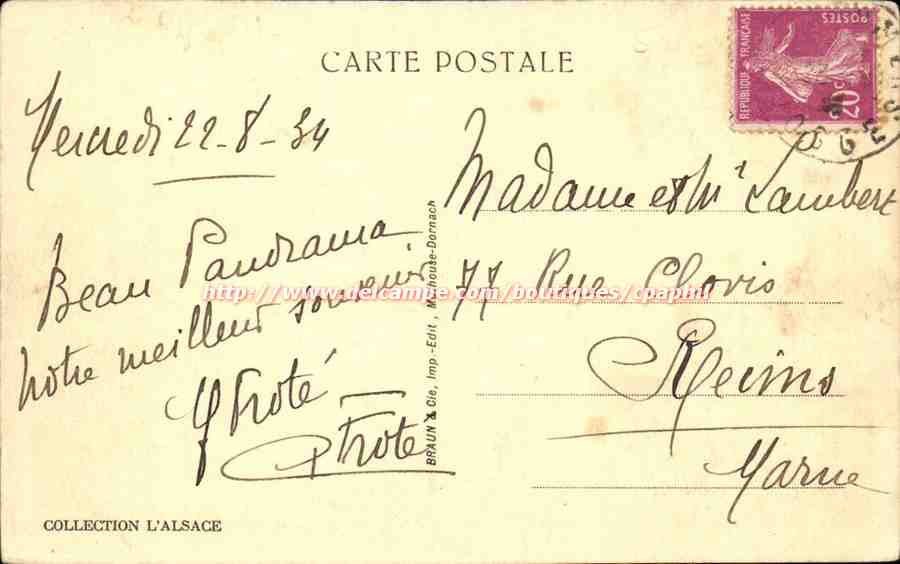 CARTE POSTALE
REPUBLIQUE FRANÇAISE
POSTES
20c
Mercredi 22-8-34
Beau Panorama
notre meilleur souvenir
Troté
Troté
Madame et Mr Lambert
77 Rue Clovis
Reims
Marne
BRAUN & Cie, Imp.-Edit., Mulhouse-Dornach
http://www.delcampe.com/boutiques/cpaphil
COLLECTION L'ALSACE